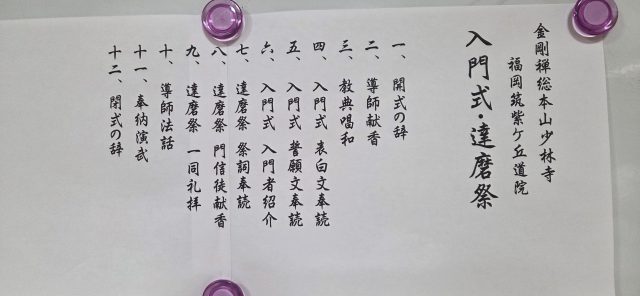 金剛禅総本山少林寺
福岡筑紫ケ丘道院
入門式・達磨祭
一、開式の辞
二、導師献香
三、教典唱和
四、入門式 表白文奉読
五、入門式 誓願文奉読
六、入門式 入門者紹介
七、達磨祭 祭詞奉読
八、達磨祭 門信徒献香
九、達磨祭 一同礼拝
十、導師法話
十一、奉納演武
十二、閉式の辞